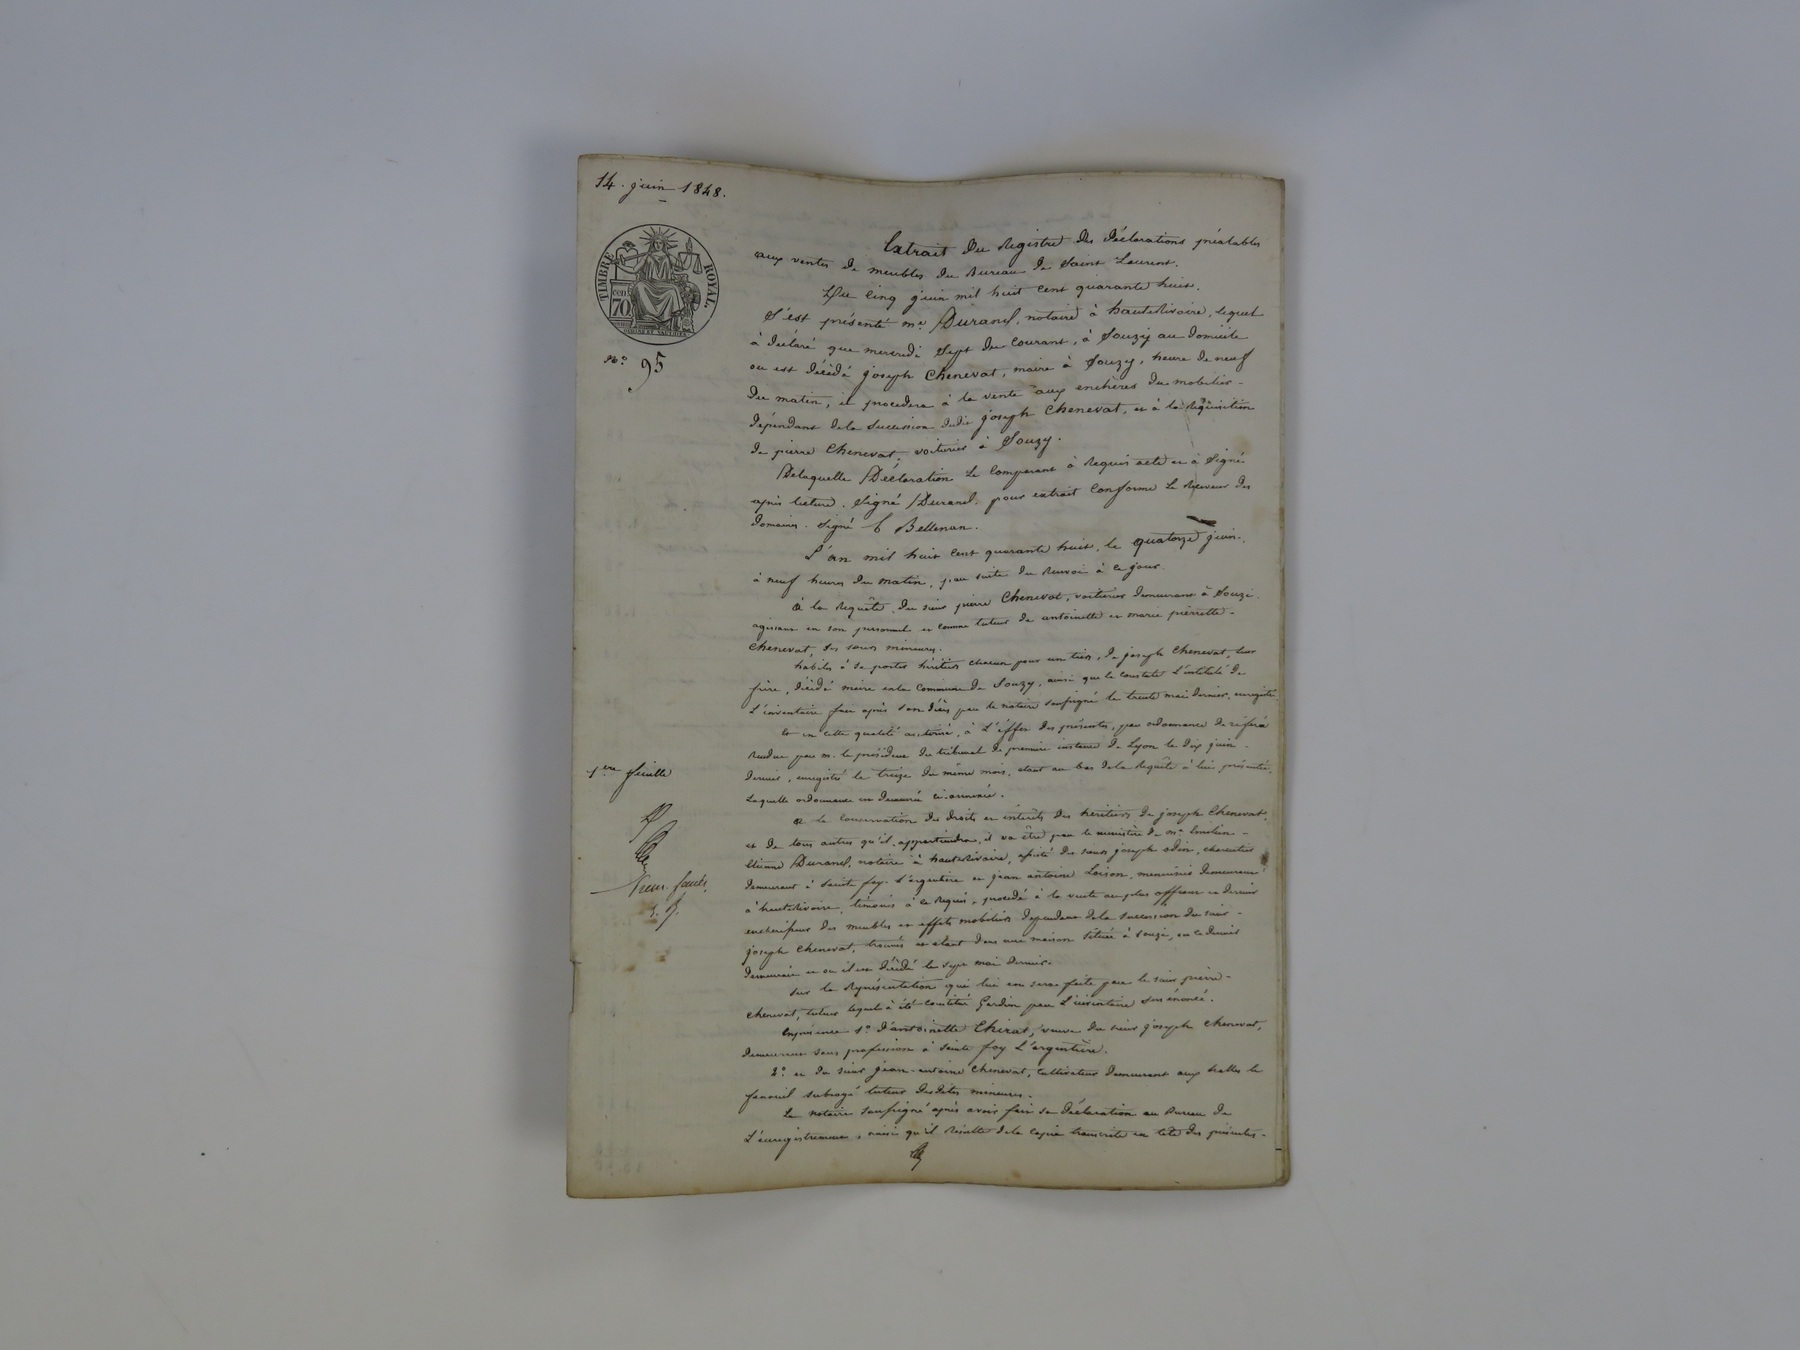 14. juin 1848.
TIMBRE ROYAL.
cen
70
N.º 95
Extrait du Registre des déclarations préalables
aux ventes de meubles du Bureau de Saint Laurent.
Du cinq juin mil huit cent quarante huit.
S'est présenté me. Durand, notaire à hauterivoire, lequel
à déclaré que mercredi Sept du courant, à Souzy au domicile
ou est décédé joseph Chenevat, maire à Souzy, heure de neuf
du matin, il procedera à la vente aux enchères du mobilier
dépendant de la Succession dudit joseph Chenevat, et à la Requisition
de pierre Chenevat, voiturier à Souzy.
De laquelle Déclaration le comparant à Requis acte et à Signé
après lecture. Signé Durand. pour extrait conforme le Receveur des
domaines. Signé Bellenan.
L'an mil huit cent quarante huit, le quatorze juin.
à neuf heures du matin, par suite du Renvoi à ce jour.
à la Requête du sieur pierre Chenevat, voiturier demeurant à Souzi
agissant en son personnel et comme tuteur de antoinette et marie pierrette
Chenevat, ses sœurs mineures.
habiles à se porter héritiers chacun pour un tiers, de joseph Chenevat, leur
frère, décédé maire de la commune de Souzy, ainsi que le constate L'intitulé de
L'inventaire fait après son décès par le notaire soussigné le trente mai dernier, enregistré
Et en cette qualité autorisé, à L'effet des présentes, par ordonnance de référé
Rendue par m. le président du tribunal de première instance de Lyon le dix juin
dernier, enregistré le treize du même mois, étant au bas de la Requête à lui présentée,
Laquelle ordonnance est demeurée ci-annexée.
à la Conservation des droits et intérêts des héritiers de joseph Chenevat,
et de tous autres qu'il appartiendra, il va être par le ministère de me
Etienne Durand, notaire à hauterivoire, assisté des sieurs joseph odin, charcutier
demeurant à Sainte foy-L'argentière et jean antoine Loison, menuisier demeurant
à hauterivoire, témoins à ce Requis, procédé à la vente au plus offrant et dernier
enchérisseur des meubles et effets mobiliers dépendant de la succession du sieur
joseph Chenevat, trouvés et étant dans une maison située à Souzi, ou ce dernier
demeurait et ou il est décédé le sept mai dernier.
Sur la Représentation qui lui en sera faite par le sieur pierre
Chenevat, tuteur lequel à été constitué Gardien par L'inventaire sus énoncé.
En présence 1.º d'antoinette Chirat, veuve du sieur joseph Chenevat,
demeurant sans profession à Sainte foy L'argentière.
2.º et du sieur jean-antoine Chenevat, cultivateur demeurant aux halles le
fenouil subrogé tuteur desdites mineures.
Le notaire soussigné après avoir fait sa déclaration au Bureau de
L'enregistrement, ainsi qu'il Résulte de la copie transcrite en tête des présentes
1ere feuille